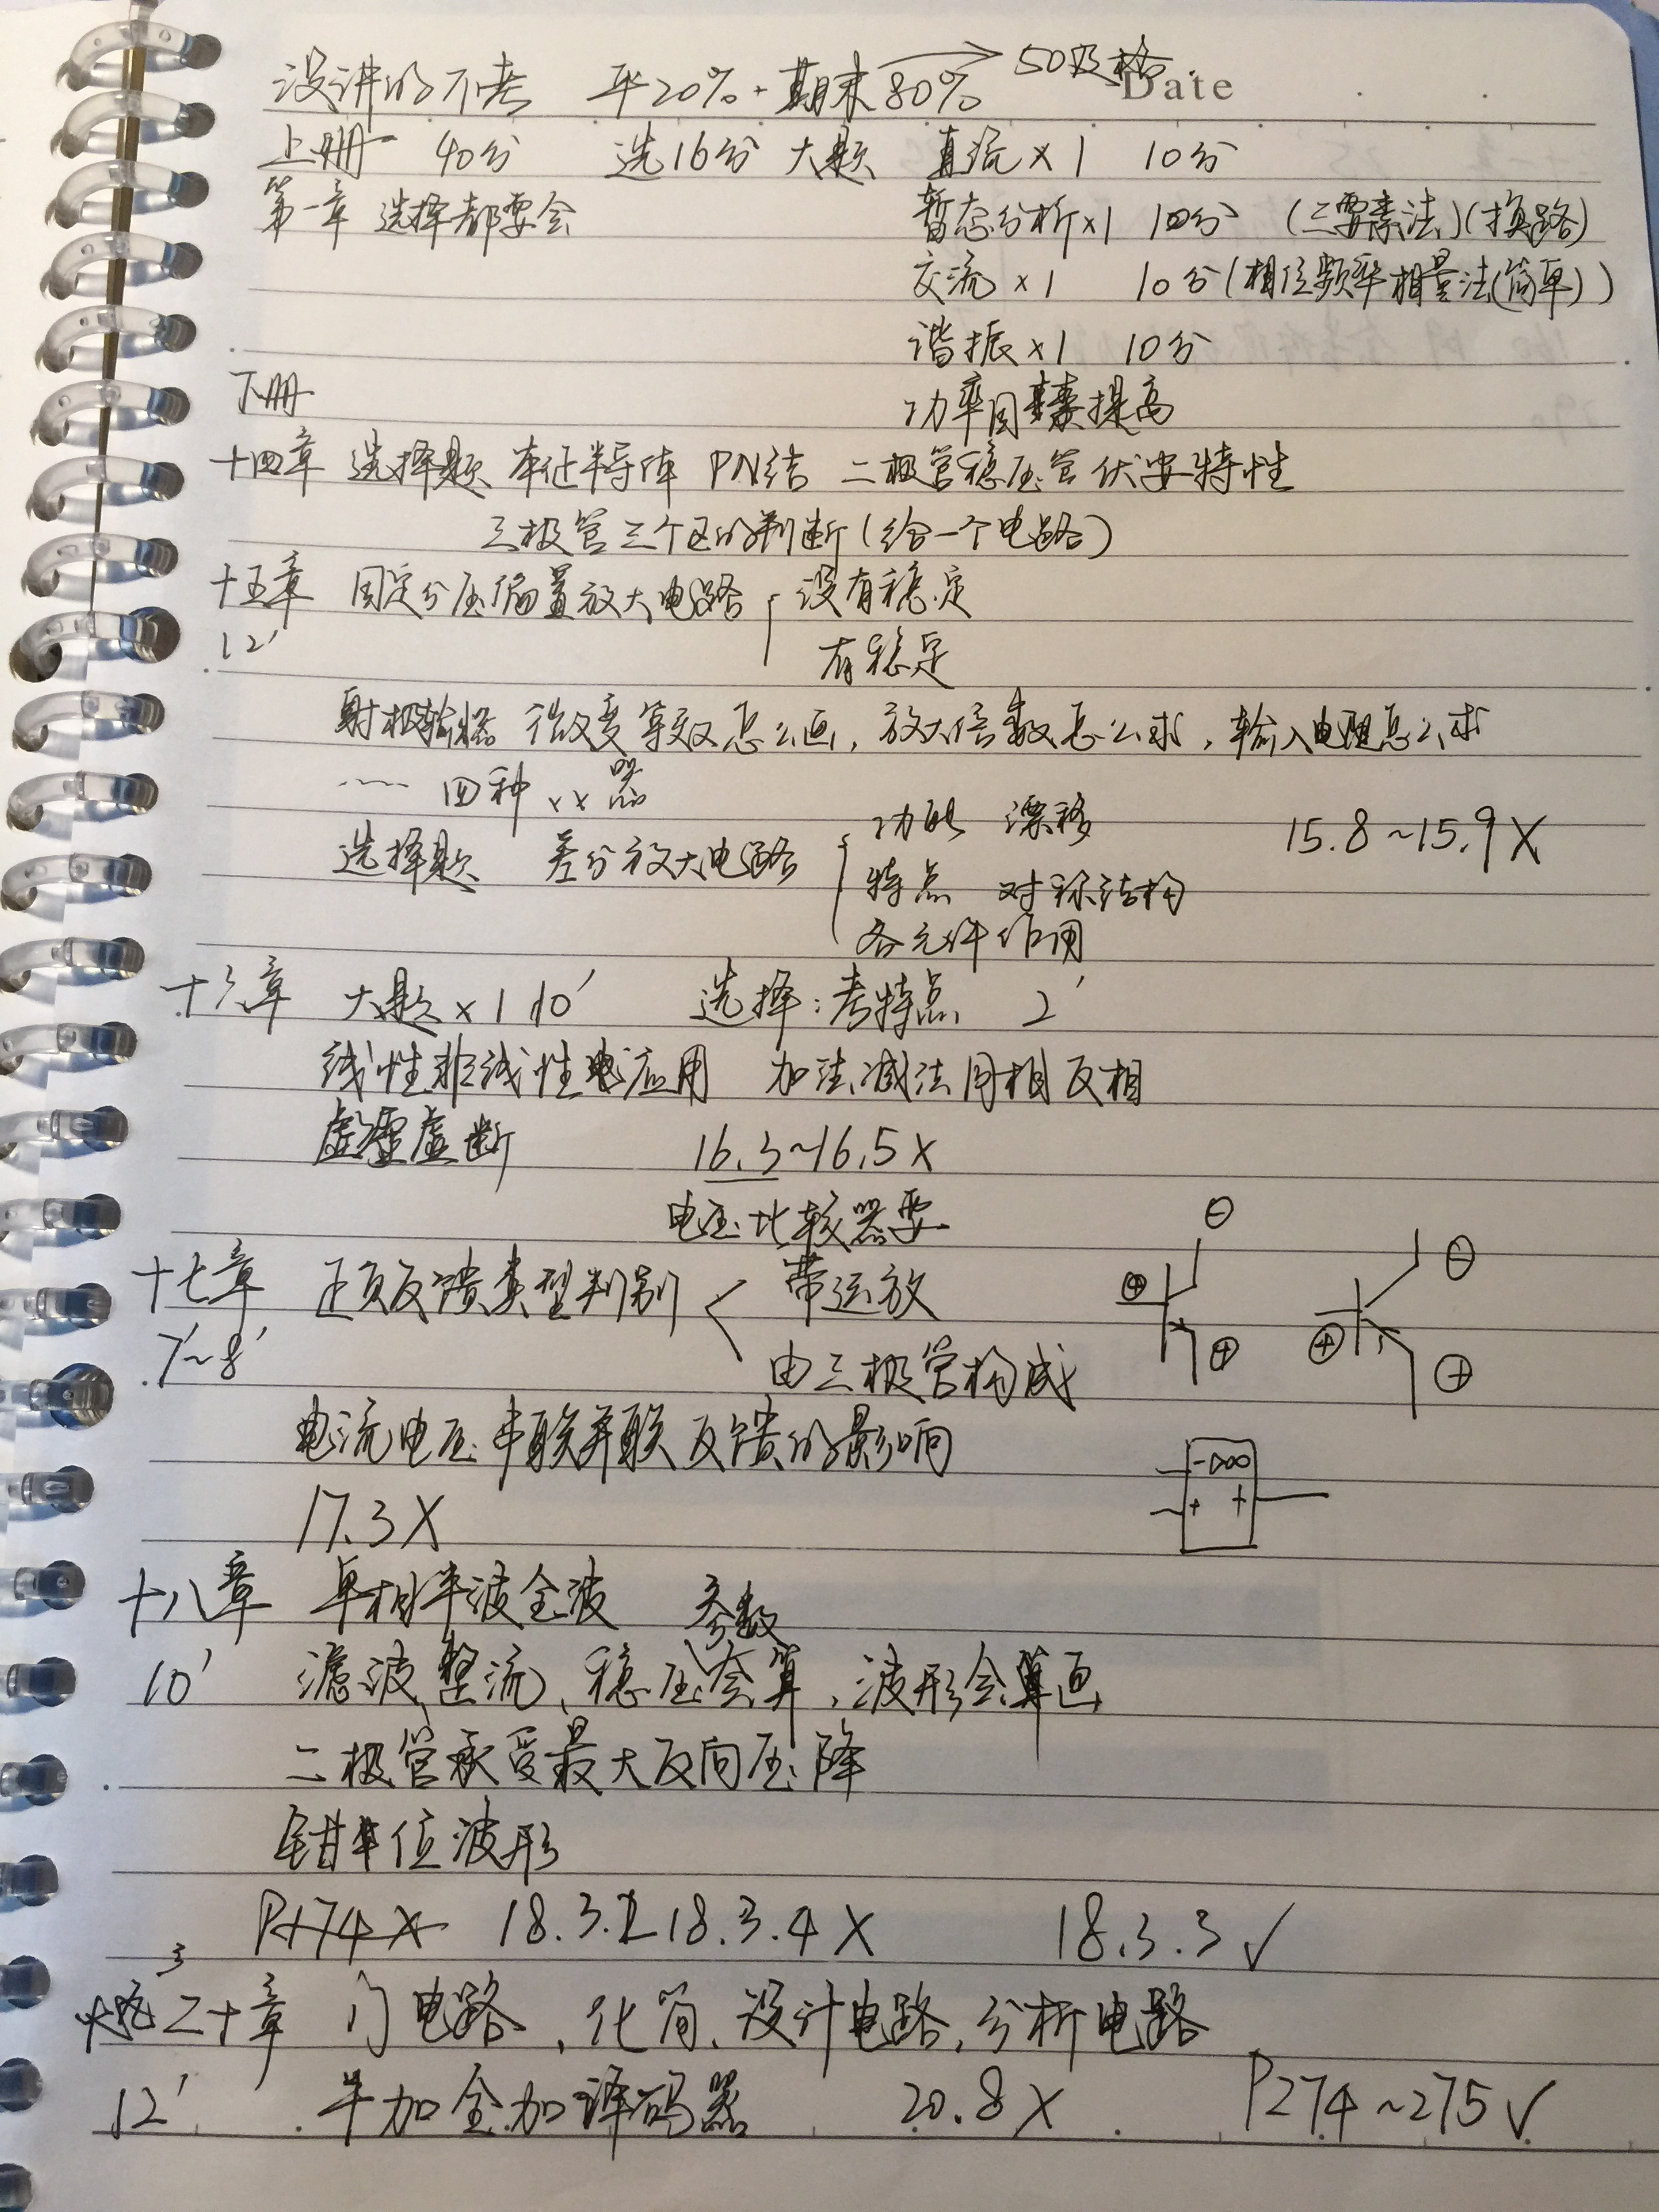 没讲的不考 平20%+期末80% → 50及格
Date
上册 40分 选16分 大题 直流×1 10分
第一章 选择都要会 暂态分析×1 10分 (三要素法)(换路)
交流×1 10分(相位频率相量法(简单))
谐振×1 10分
下册 功率因素提高
十四章 选择题 本征半导体 PN结 二极管稳压管伏安特性
三极管三个区的判断(给一个电路)
十五章 固定分压偏置放大电路 没有稳定
12' 有稳定
射极输出器 微变等效怎么画,放大倍数怎么求,输入电阻怎么求
四种××器
功能 漂移
选择题 差分放大电路 15.8~15.9×
特点 对称结构
各元件作用
十六章 大题×1 10' 选择:考特点 2'
线性非线性应用 加法减法同相反相
虚短虚断 16.3~16.5×
电压比较器要
十七章 正负反馈类型判别 带运放
7'~8' 由三极管构成
⊖ ⊕ ⊕ ⊖ ⊕ ⊕
电流电压串联并联反馈的影响
-▷∞
+ +
17.3×
十八章 单相半波全波 参数
10' 滤波、整流、稳压会算,波形会画
二极管承受最大反向压降
钳位波形
P174× 18.3.2 18.3.4× 18.3.3✓
二十章 门电路、化简、设计电路、分析电路
12' 半加全加译码器 20.8× P274~275✓